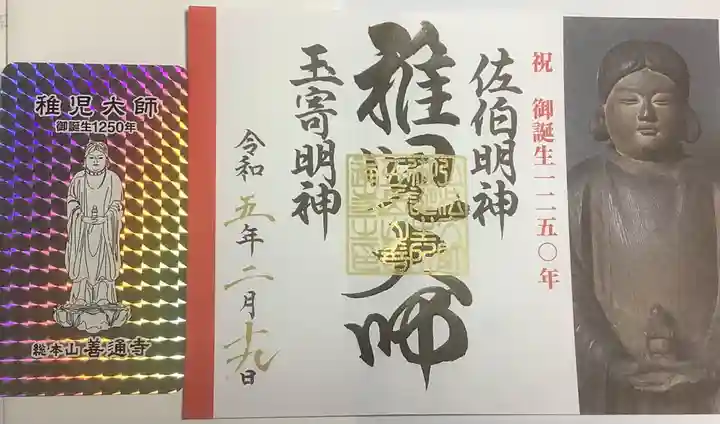 稚児大師
御誕生1250年
総本山善通寺
祝 御誕生一二五〇年
佐伯明神
稚児大師
玉寄明神
令和五年二月十九日